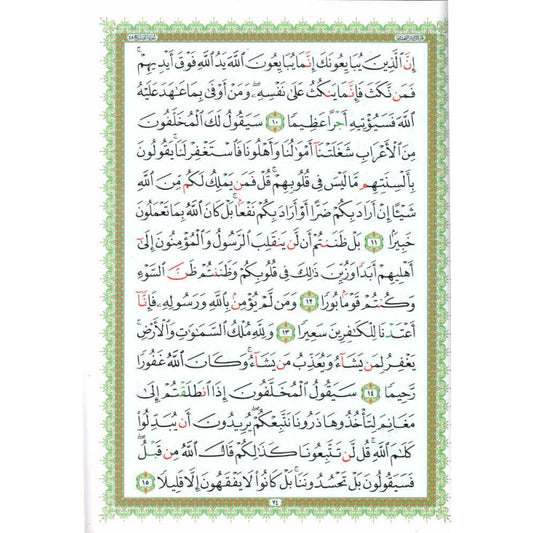 إِنَّ ٱلَّذِينَ يُبَايِعُونَكَ إِنَّمَا يُبَايِعُونَ ٱللَّهَ يَدُ ٱللَّهِ فَوْقَ أَيْدِيهِمْۚ
فَمَن نَّكَثَ فَإِنَّمَا يَنكُثُ عَلَىٰ نَفْسِهِۦۖ وَمَنْ أَوْفَىٰ بِمَا عَٰهَدَ عَلَيْهُ
ٱللَّهَ فَسَيُؤْتِيهِ أَجْرًا عَظِيمًا ١٠ سَيَقُولُ لَكَ ٱلْمُخَلَّفُونَ
مِنَ ٱلْأَعْرَابِ شَغَلَتْنَآ أَمْوَٰلُنَا وَأَهْلُونَا فَٱسْتَغْفِرْ لَنَاۚ يَقُولُونَ
بِأَلْسِنَتِهِم مَّا لَيْسَ فِى قُلُوبِهِمْۚ قُلْ فَمَن يَمْلِكُ لَكُم مِّنَ ٱللَّهِ
شَيْـًٔا إِنْ أَرَادَ بِكُمْ ضَرًّا أَوْ أَرَادَ بِكُمْ نَفْعًۢاۚ بَلْ كَانَ ٱللَّهُ بِمَا تَعْمَلُونَ
خَبِيرًۢا ١١ بَلْ ظَنَنتُمْ أَن لَّن يَنقَلِبَ ٱلرَّسُولُ وَٱلْمُؤْمِنُونَ إِلَىٰٓ
أَهْلِيهِمْ أَبَدًا وَزُيِّنَ ذَٰلِكَ فِى قُلُوبِكُمْ وَظَنَنتُمْ ظَنَّ ٱلسَّوْءِ
وَكُنتُمْ قَوْمًۢا بُورًا ١٢ وَمَن لَّمْ يُؤْمِنۢ بِٱللَّهِ وَرَسُولِهِۦ فَإِنَّآ
أَعْتَدْنَا لِلْكَٰفِرِينَ سَعِيرًا ١٣ وَلِلَّهِ مُلْكُ ٱلسَّمَٰوَٰتِ وَٱلْأَرْضِۚ
يَغْفِرُ لِمَن يَشَآءُ وَيُعَذِّبُ مَن يَشَآءُۚ وَكَانَ ٱللَّهُ غَفُورًا
رَّحِيمًا ١٤ سَيَقُولُ ٱلْمُخَلَّفُونَ إِذَا ٱنطَلَقْتُمْ إِلَىٰ
مَغَانِمَ لِتَأْخُذُوهَا ذَرُونَا نَتَّبِعْكُمْۖ يُرِيدُونَ أَن يُبَدِّلُوا۟
كَلَٰمَ ٱللَّهِۚ قُل لَّن تَتَّبِعُونَا كَذَٰلِكُمْ قَالَ ٱللَّهُ مِن قَبْلُۖ
فَسَيَقُولُونَ بَلْ تَحْسُدُونَنَاۚ بَلْ كَانُوا۟ لَا يَفْقَهُونَ إِلَّا قَلِيلًا ١٥
٧٤